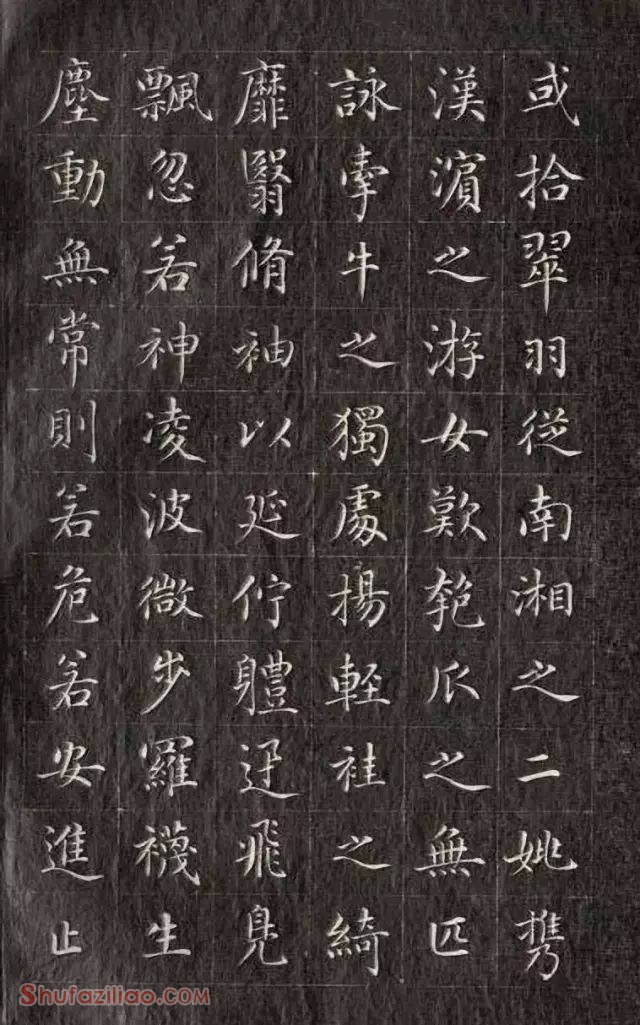 或拾翠羽從南湘之二姚携
漢濱之游女歎匏瓜之無匹
詠牽牛之獨處揚輕袿之綺
靡翳脩袖以延佇體迅飛鳧
飄忽若神凌波微步羅襪生
塵動無常則若危若安進止
Shufaziliao.COM